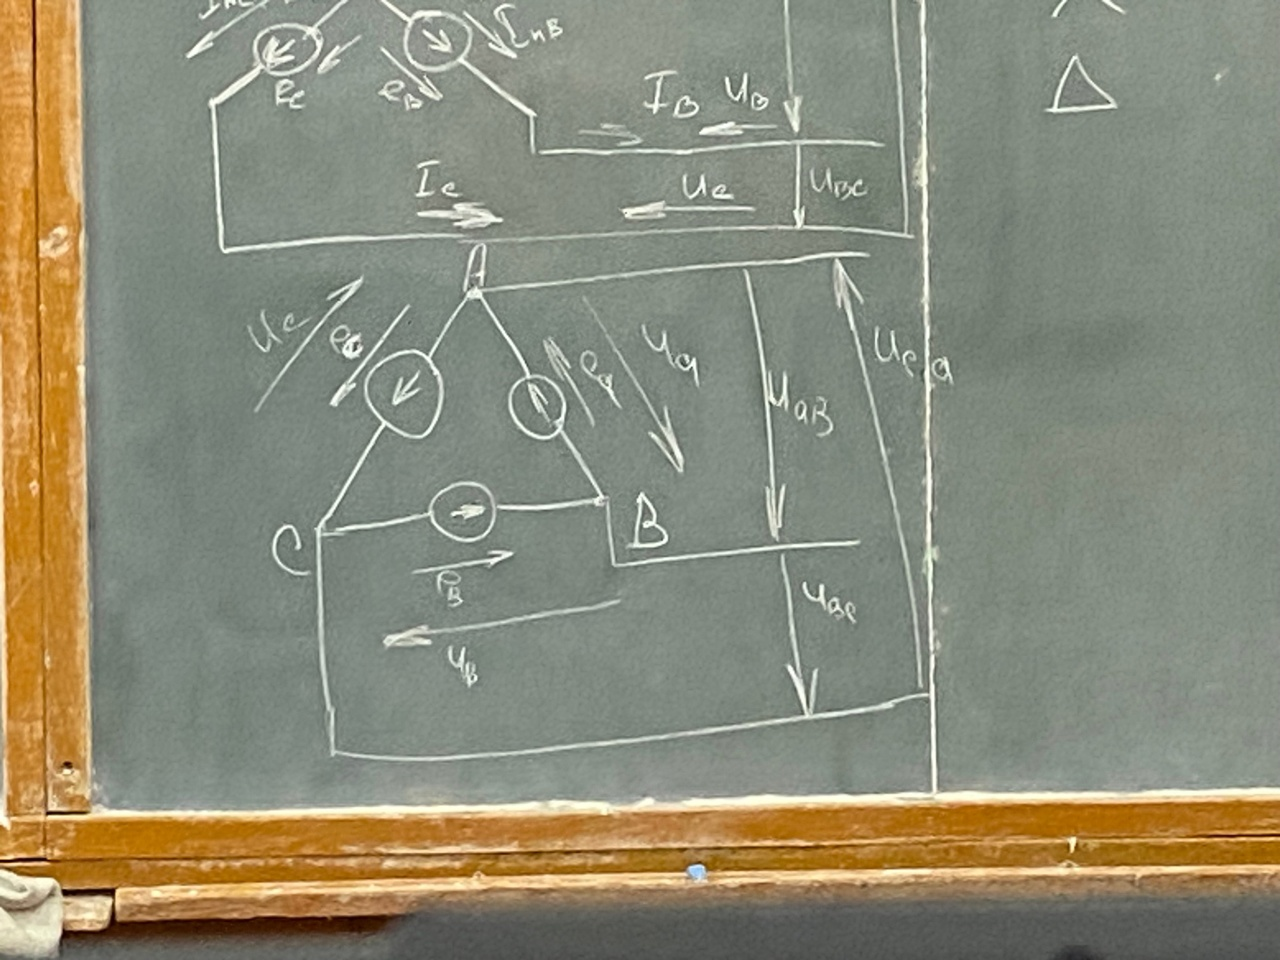 e_C e_B I_nB
I_B U_B
I_C U_C U_BC
A
U_C e_C e_a U_a U_aB U_ca
C B
e_B
U_B U_BC